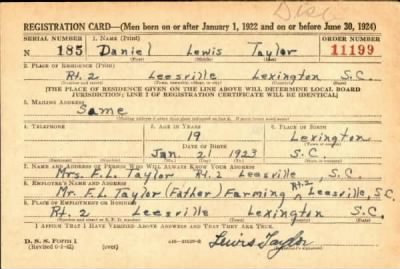 Disc
REGISTRATION CARD—(Men born on or after January 1, 1922 and on or before June 30, 1924)
SERIAL NUMBER 1. NAME (Print) ORDER NUMBER
N 185 Daniel Lewis Taylor 11199
(First) (Middle) (Last)
2. PLACE OF RESIDENCE (Print)
Rt. 2 Leesville Lexington S.C.
[THE PLACE OF RESIDENCE GIVEN ON THE LINE ABOVE WILL DETERMINE LOCAL BOARD
JURISDICTION; LINE 2 OF REGISTRATION CERTIFICATE WILL BE IDENTICAL]
3. MAILING ADDRESS
Same
4. TELEPHONE 5. AGE IN YEARS 6. PLACE OF BIRTH
19 Lexington
DATE OF BIRTH
Jan. 21 1923 S.C.
7. NAME AND ADDRESS OF PERSON WHO WILL ALWAYS KNOW YOUR ADDRESS
Mrs. F.L. Taylor Rt. 2 Leasville S.C.
8. EMPLOYER'S NAME AND ADDRESS
Mr. F.L. Taylor (Father) Farming Rt. 2 Leasville, S.C.
9. PLACE OF EMPLOYMENT OR BUSINESS
Rt. 2 Leesville Lexington S.C.
I AFFIRM THAT I HAVE VERIFIED ABOVE ANSWERS AND THAT THEY ARE TRUE.
D. S. S. Form 1
(Revised 6-9-42) (over)
Lewis Taylor